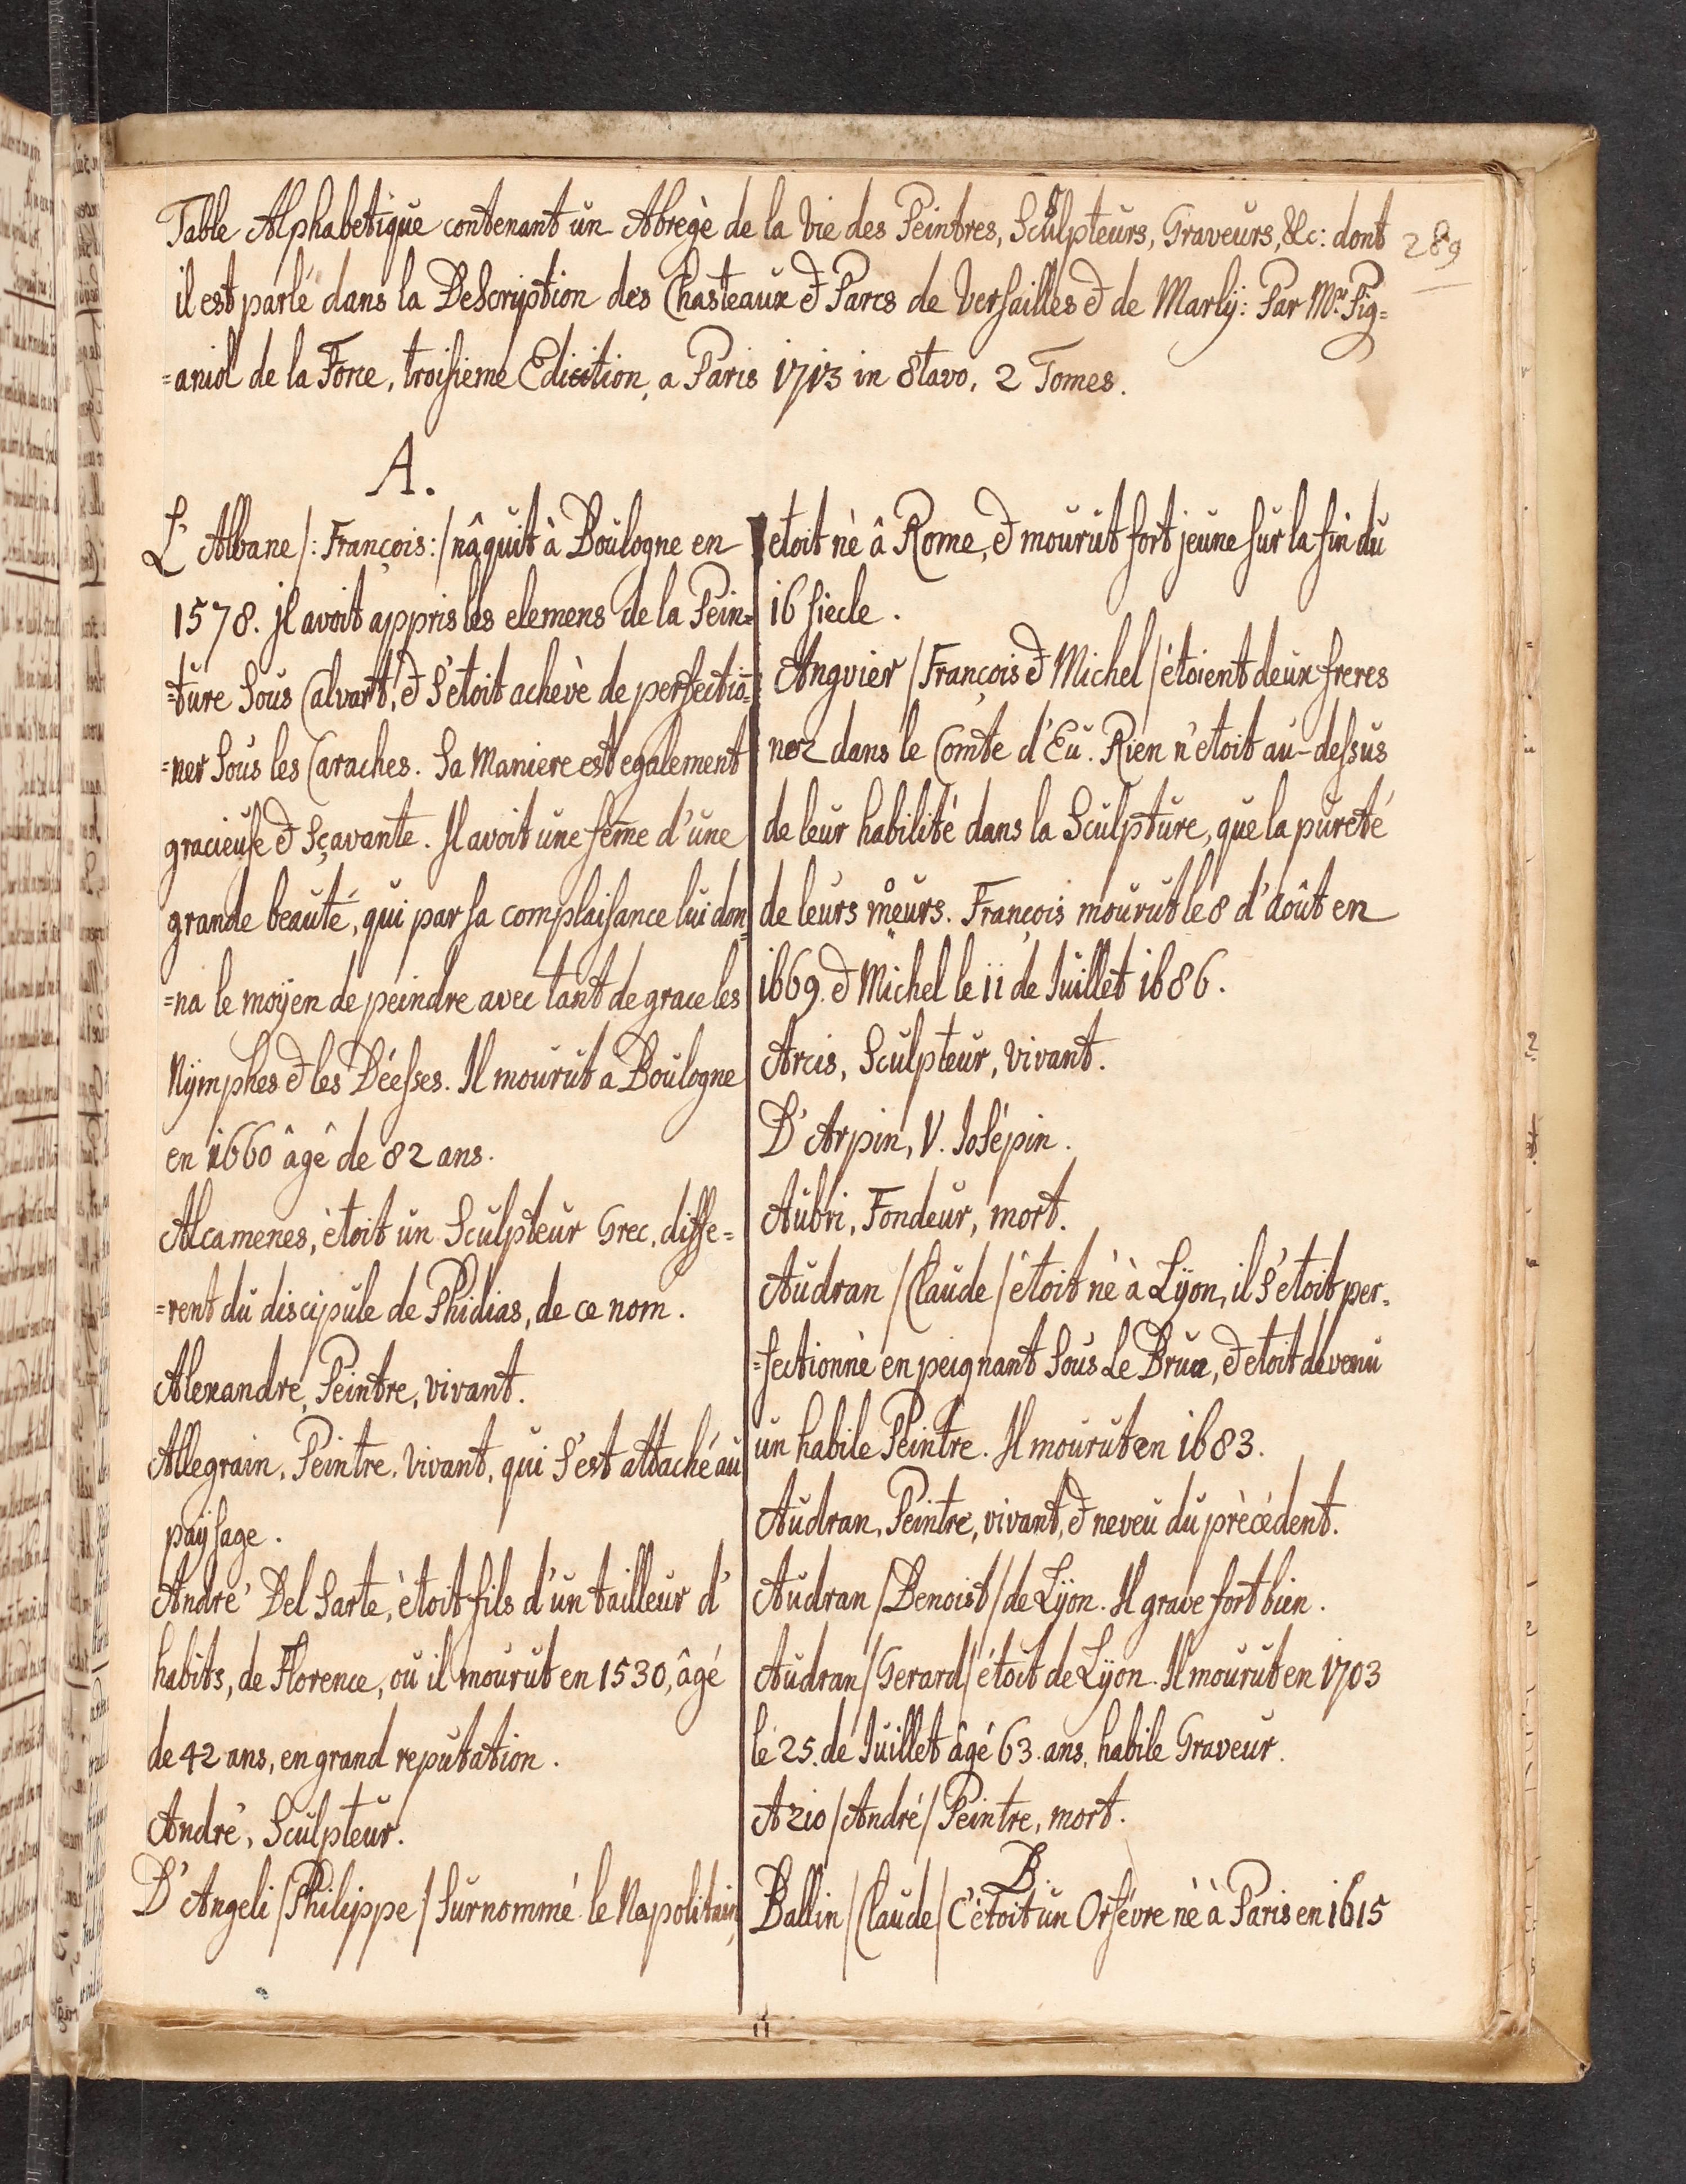 Table Alphabetique contenant un Abregè de la Vie des Peintres, Sculpteurs, Graveurs, &c: dont
289
il est parlé dans la Description des Chasteaux & Parcs de Versailles & de Marly: Par Mr. Pig=
=aniol de la Force, troisieme Edicition, a Paris 1713 in 8tavo, 2 Tomes.
A.
L' Albane /: François: / nâquit à Boulogne en
1578. Il avoit appris les elemens de la Pein=
=ture Sous Calvart, & S'etoit achevè de perfectiō=
=ner Sous les Caraches. Sa Maniere est egalement
gracieuse & Sçavante. Il avoit une fem̄e d'une
grande beauté, qui par sa complaisance lui don=
=na le moÿen de peindre avec tant de grace les
Nÿmphes & les Déesses. Il mourut a Boulogne
en 1660 âgé de 82 ans.
Alcamenes, ètoit un Sculpteur Grec, diffe=
=rent du discipule de Phidias, de ce nom.
Alexandre, Peintre, vivant.
Allegrain, Peintre, Vivant, qui S'est attaché au
paÿsage.
André Del Sarte, ètoit fils d'un tailleur d'
habits, de Florence, ou il mourut en 1530, âgé
de 42 ans, en grand reputation.
André, Sculpteur.
D' Angeli / Philippe / Surnommé le Napolitain,
etoit nè â Rome, & mourut fort jeune sur la fin du
16 siecle.
Angvier / François & Michel / étoient deux freres
nez dans le Comte d'Eu. Rien n'etoit au-dessus
de leur habilité dans la Sculpture, que la pureté
de leurs mœurs. François mourut le 8 d'Août en
1669. & Michel le 11 de Juillet 1686.
Arcis, Sculpteur, vivant.
D' Arpin, V. Josépin.
Aubri, Fondeur, mort.
Audran / Claude / étoit né à Lÿon, il S'etoit per=
=fectionnè en peignant Sous Le Brun, & etoit devenu
un habile Peintre. Il mourut en 1683.
Audran, Peintre, vivant, & neveu du prècédent.
Audran / Benoist / de Lÿon. Il grave fort bien.
Audran / Gerard / étoit de Lÿon. Il mourut en 1703
le 25. de Juillet âgé 63. ans, habile Graveur.
Azio / André / Peintre, mort.
B.
Ballin / Claude / C'étoit un Orfévre nè à Paris en 1615